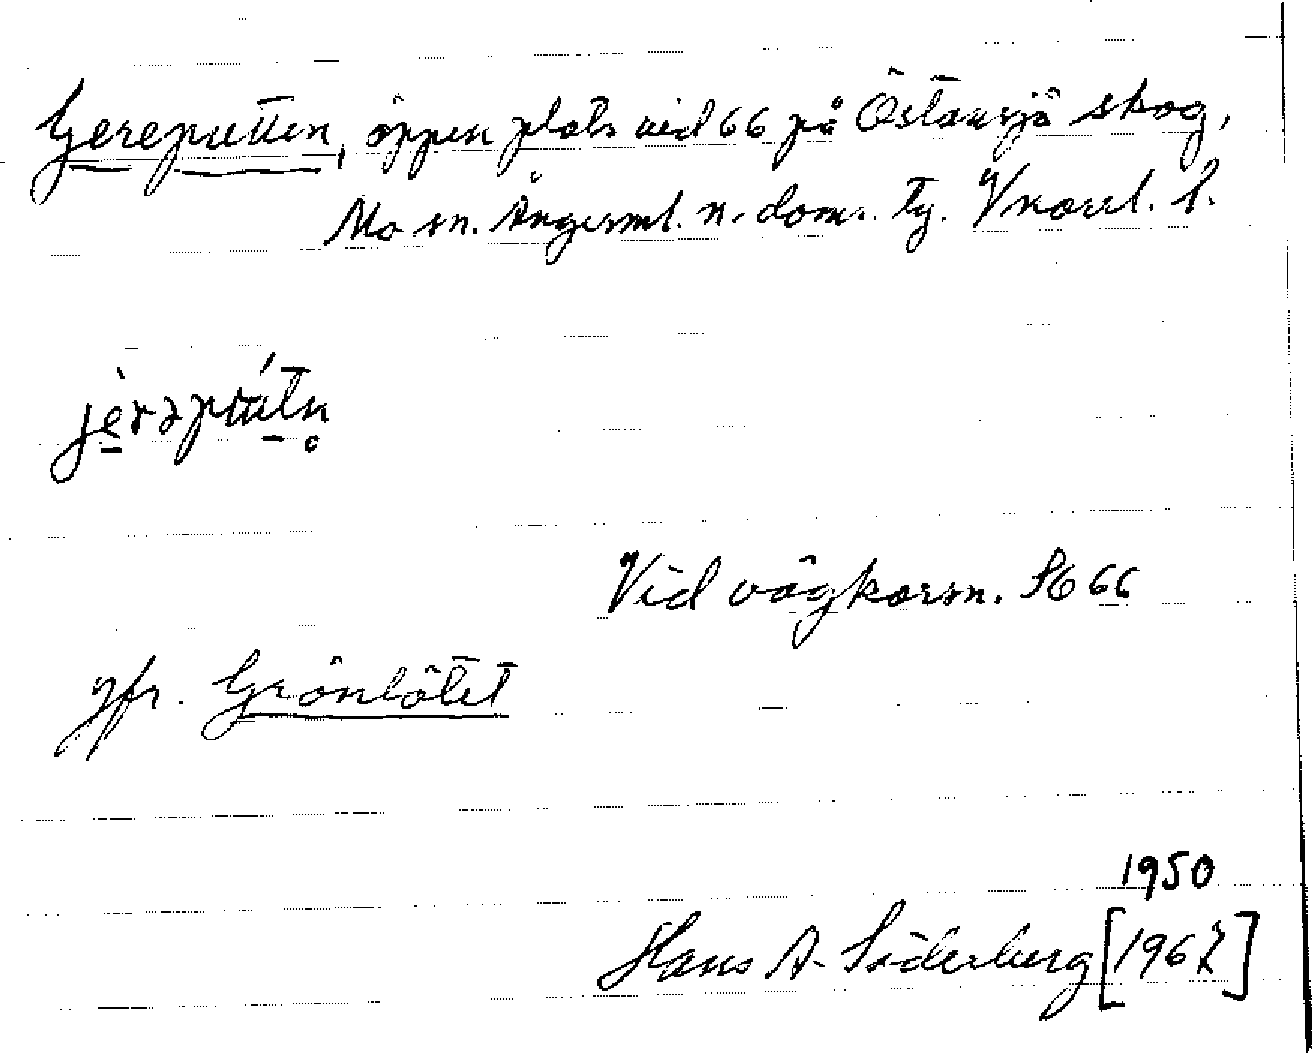 Gereputten, öppen plats vid 66 på Östansjö skog,
Mo sn. Ångerml. n. doms. Tg.
jèrəpútn̥
Vid vägkorsn. St 66
Jfr. Grönlötet
1950
Hans A. Söderberg [1967]